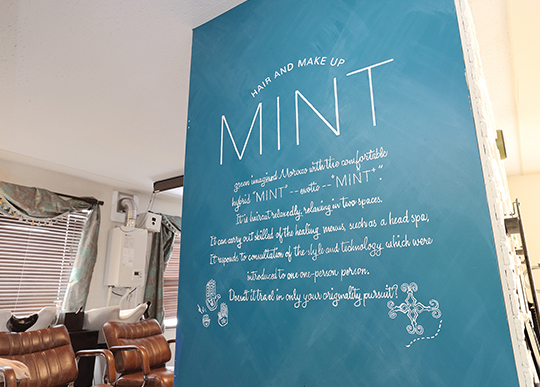 HAIR AND MAKE UP
MINT
green imagined Morocco with the comfortable
hybrid "MINT" -- exotic -- "MINT+".
It is haircut relaxedly, relaxing in two spaces.
It can carry out skilled of the healing menus, such as a head spa,
It responds to consultation of the style and technology which were
introduced to one one-person person.
Doesn't it travel in only your originality pursuit?